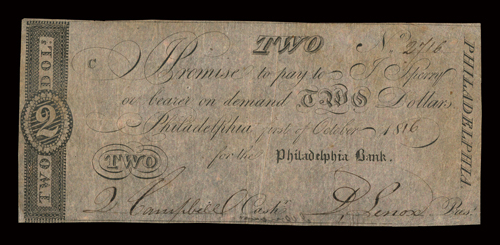 TWO
No. 2716
C
I Promise to pay to J Sperry
or bearer on demand TWO Dollars.
Philadelphia first of October 1816
for the Philadelphia Bank.
TWO
Q Campbell Cashr
D. Lenox Pres.
TWO 2 DOLL
PHILADELPHIA